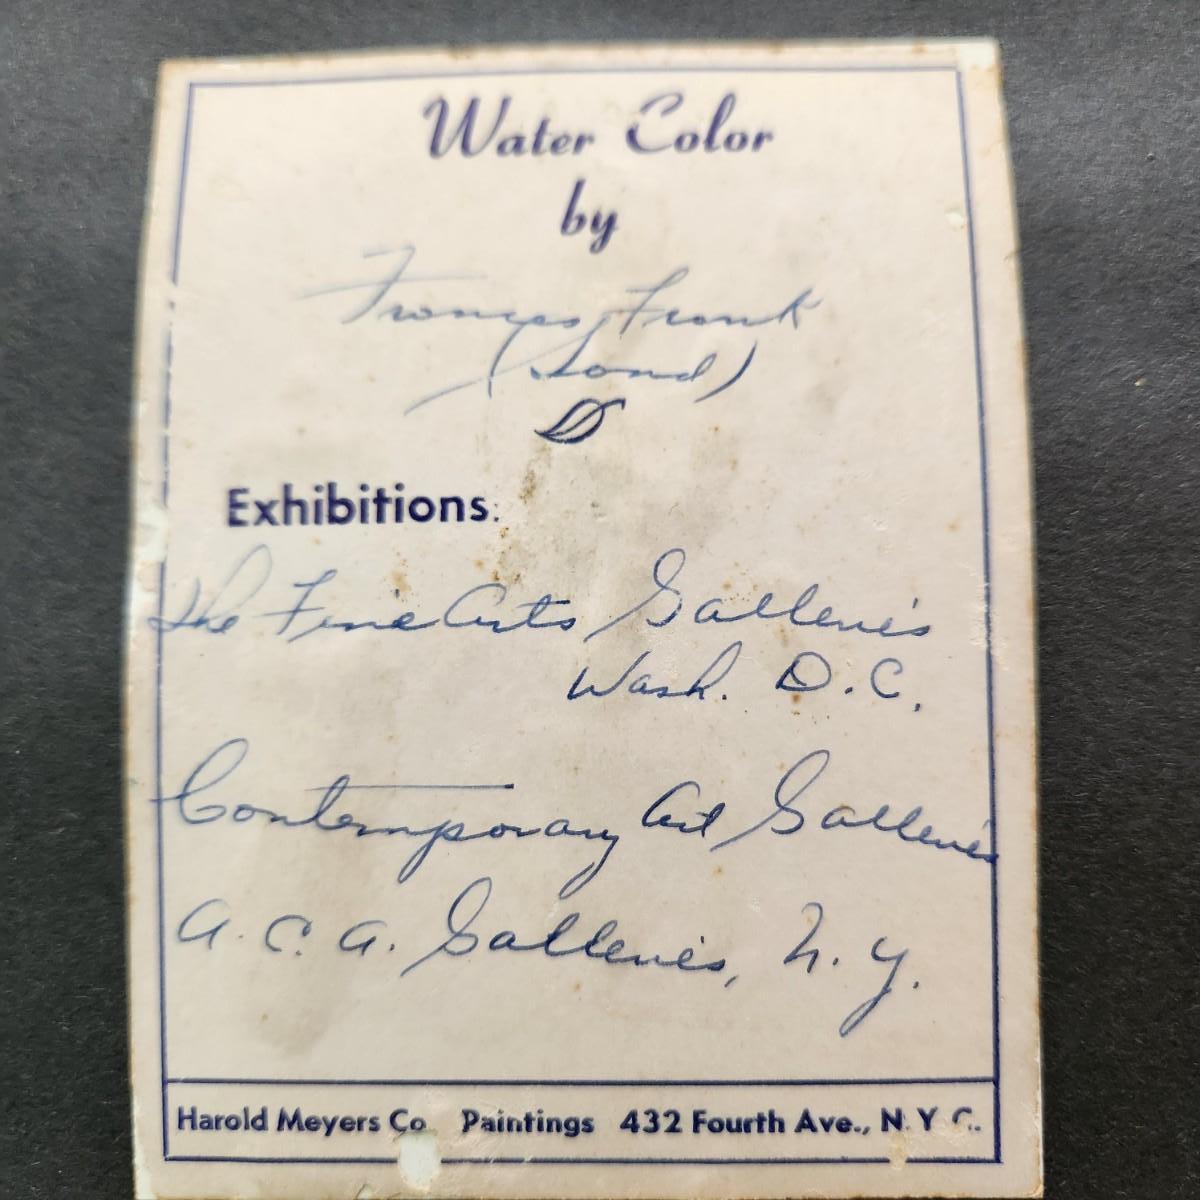 Water Color
by
Frances Frank
(Sond)
Exhibitions:
The Fine Arts Galleries
Wash. D.C.
Contemporary Art Galleries
A.C.A. Galleries, N.Y.
Harold Meyers Co. Paintings 432 Fourth Ave., N.Y.C.